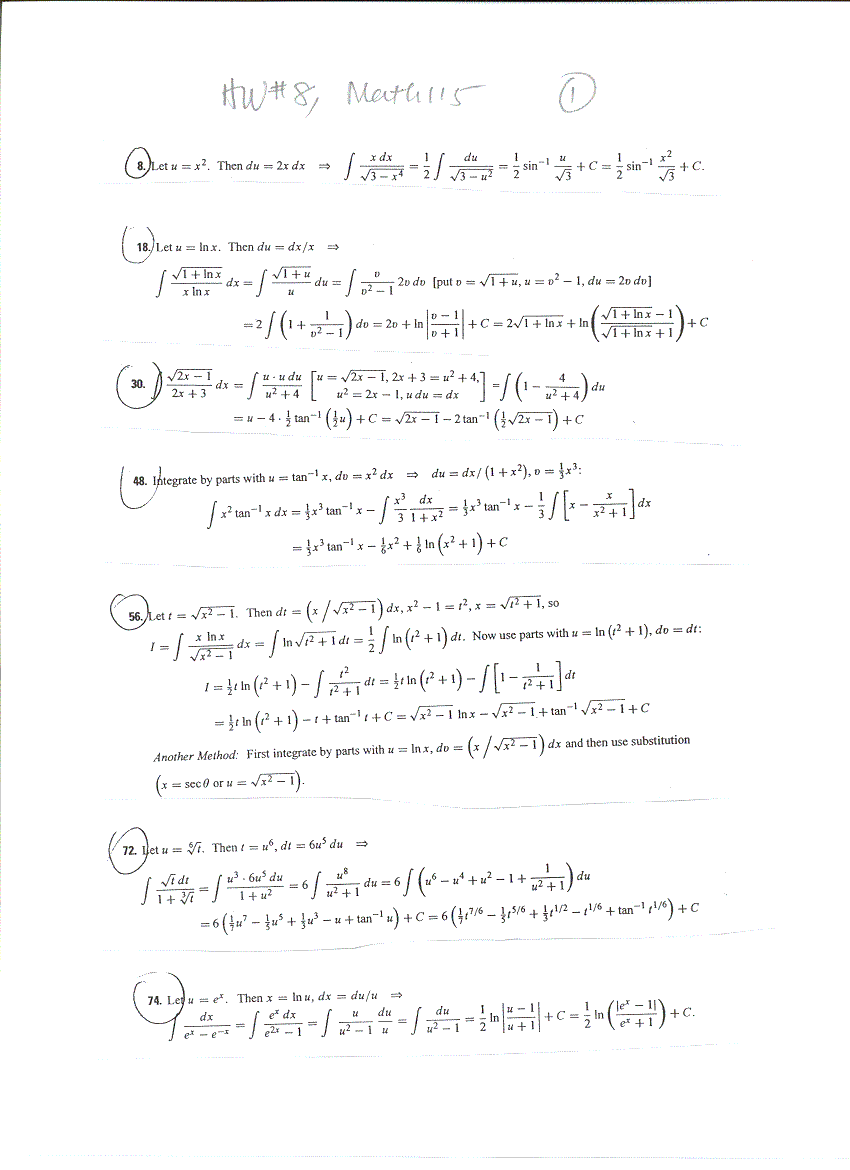 HW#8, Math 115 ①
8. Let u = x². Then du = 2x dx ⇒ ∫ x dx/√(3 − x⁴) = 1/2 ∫ du/√(3 − u²) = 1/2 sin⁻¹ u/√3 + C = 1/2 sin⁻¹ x²/√3 + C.
18. Let u = ln x. Then du = dx/x ⇒
∫ √(1 + ln x)/(x ln x) dx = ∫ √(1 + u)/u du = ∫ v/(v² − 1) 2v dv [put v = √(1 + u), u = v² − 1, du = 2v dv]
= 2 ∫ (1 + 1/(v² − 1)) dv = 2v + ln |(v − 1)/(v + 1)| + C = 2√(1 + ln x) + ln ((√(1 + ln x) − 1)/(√(1 + ln x) + 1)) + C
30. ∫ √(2x − 1)/(2x + 3) dx = ∫ u · u du/(u² + 4) [u = √(2x − 1), 2x + 3 = u² + 4, u² = 2x − 1, u du = dx] = ∫ (1 − 4/(u² + 4)) du
= u − 4 · ½ tan⁻¹ (½u) + C = √(2x − 1) − 2 tan⁻¹ (½√(2x − 1)) + C
48. Integrate by parts with u = tan⁻¹ x, dv = x² dx ⇒ du = dx/(1 + x²), v = ⅓x³:
∫ x² tan⁻¹ x dx = ⅓x³ tan⁻¹ x − ∫ x³/3 dx/(1 + x²) = ⅓x³ tan⁻¹ x − 1/3 ∫ [x − x/(x² + 1)] dx
= ⅓x³ tan⁻¹ x − ⅙x² + ⅙ ln (x² + 1) + C
56. Let t = √(x² − 1). Then dt = (x/√(x² − 1)) dx, x² − 1 = t², x = √(t² + 1), so
I = ∫ x ln x/√(x² − 1) dx = ∫ ln √(t² + 1) dt = 1/2 ∫ ln (t² + 1) dt. Now use parts with u = ln (t² + 1), dv = dt:
I = ½t ln (t² + 1) − ∫ t²/(t² + 1) dt = ½t ln (t² + 1) − ∫ [1 − 1/(t² + 1)] dt
= ½t ln (t² + 1) − t + tan⁻¹ t + C = √(x² − 1) ln x − √(x² − 1) + tan⁻¹ √(x² − 1) + C
Another Method: First integrate by parts with u = ln x, dv = (x/√(x² − 1)) dx and then use substitution
(x = sec θ or u = √(x² − 1)).
72. Let u = ⁶√t. Then t = u⁶, dt = 6u⁵ du ⇒
∫ √t dt/(1 + ³√t) = ∫ u³ · 6u⁵ du/(1 + u²) = 6 ∫ u⁸/(u² + 1) du = 6 ∫ (u⁶ − u⁴ + u² − 1 + 1/(u² + 1)) du
= 6 (1/7 u⁷ − 1/5 u⁵ + 1/3 u³ − u + tan⁻¹ u) + C = 6 (1/7 t^(7/6) − 1/5 t^(5/6) + 1/3 t^(1/2) − t^(1/6) + tan⁻¹ t^(1/6)) + C
74. Let u = eˣ. Then x = ln u, dx = du/u ⇒
∫ dx/(eˣ − e⁻ˣ) = ∫ eˣ dx/(e²ˣ − 1) = ∫ u/(u² − 1) du/u = ∫ du/(u² − 1) = 1/2 ln |(u − 1)/(u + 1)| + C = 1/2 ln (|eˣ − 1|/(eˣ + 1)) + C.